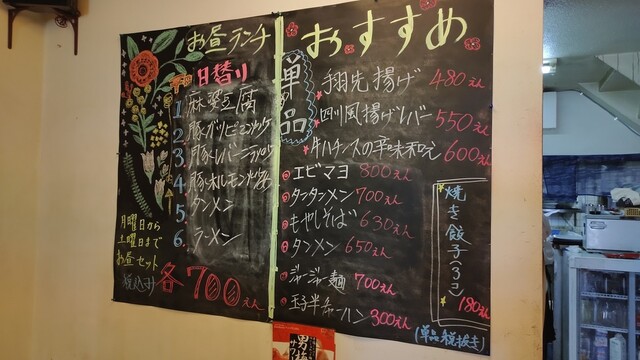 お昼ランチ
日替り
1 麻婆豆腐
2.
3
4
5 タンメン
6. ラーメン
月曜日から
土曜日まで
お昼セット
税込み
各700えん
おすすめ
単品
手羽先揚げ 480えん
四川風揚げレバー 550えん
牛ハチノスの辛味和え 600えん
エビマヨ 800えん
タンタンメン 700えん
もやしそば 630えん
タンメン 650えん
ジャージャー麺 700えん
玉子半チャーハン 300えん
焼き餃子(3コ)
180えん
(単品税抜き)